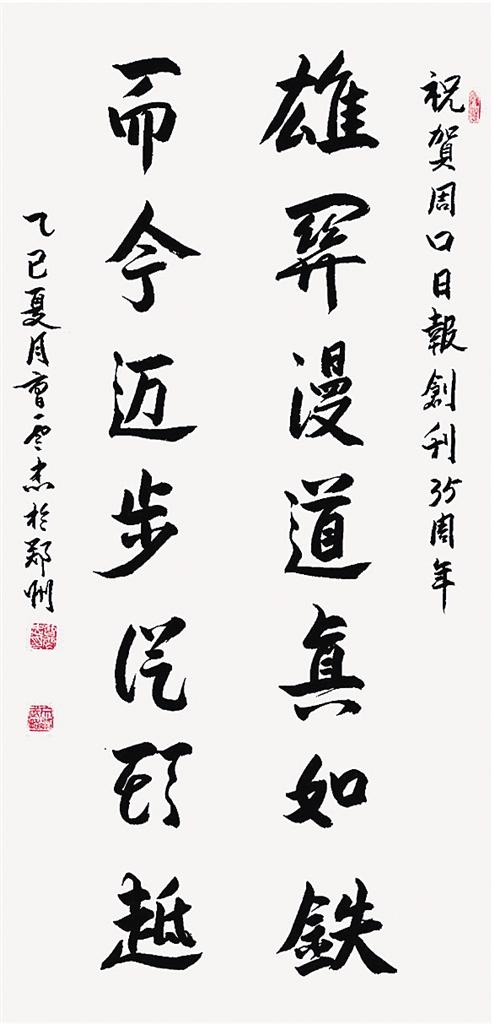 祝賀周口日報創刊35周年
雄關漫道真如鉄
而今迈步從頭越
乙巳夏月曹雲杰於鄭州